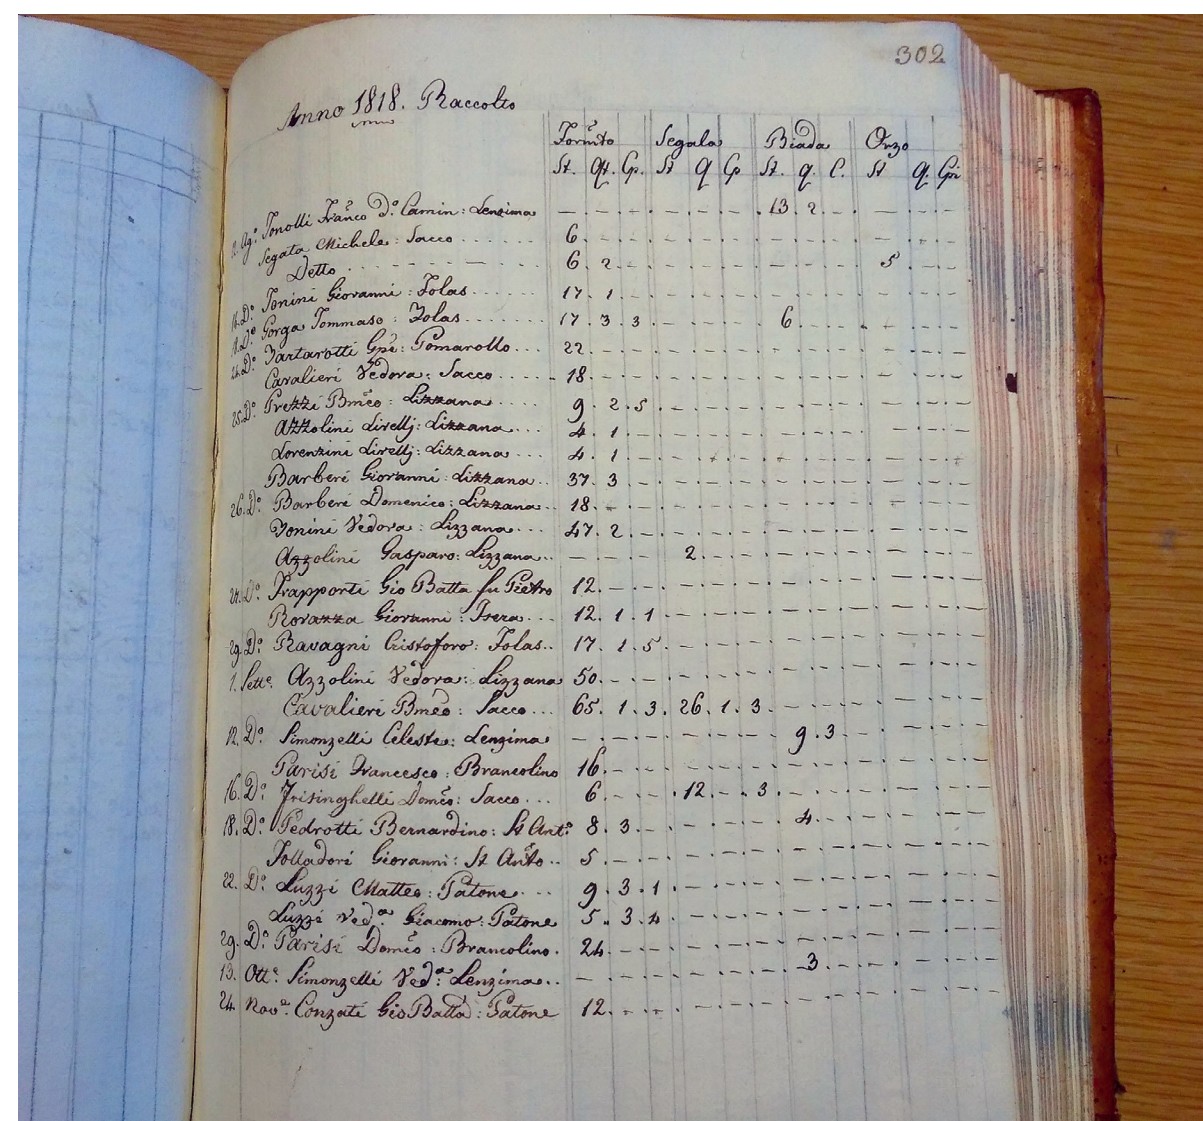 302
Anno 1818. Raccolto
Formto Segala Biada Orzo
St. Qt. Cp. St Q Cp St. q. C. St Q. Cpi
Tonolli Franco Do Camin: Lenzima — 13. 2
Segata Michele: Sacco 6.
Detto 6. 2. 5
16. Do Tonini Giovanni: Folas 17. 1
Do Gorga Tommaso: Folas 17. 3. 3. 6
24. Do Tartarotti Gpe: Pomarollo 22
Cavalieri Vedova: Sacco 18.
25. Do Prezzi Bmeo: Lizzana 9. 2. 5
Azzolini Livellj: Lizzana 4. 1
Lorenzini Livellj: Lizzana 4. 1
Barberi Giovanni: Lizzana 37. 3
26. Do Barberi Domenico: Lizzana 18.
Tonini Vedova: Lizzana 47. 2.
Azzolini Gasparo: Lizzana — 2
Do Frapporti Gio Batta fu Pietro 12.
Rovazza Giovanni: Isera 12. 1. 1
29. Do Ravagni Cristoforo: Folas 17. 1. 5.
1. Sette. Azzolini Vedova: Lizzana 50.
Cavalieri Bmeo: Sacco 65. 1. 3. 26. 1. 3
12. Do Simonzelli Celeste: Lenzima — 9. 3
Parisi Francesco: Brancolino 16
16. Do Frisinghelli Domco: Sacco 6. 12. — 3
18. Do Pedrotti Bernardino: St Anto 8. 3. 4
Folladori Giovanni: St Anto 5.
22. Do Luzzi Matteo: Patone 9. 3. 1
Luzzi Veda Giacomo: Patone 5. 3. 4
29. Do Parisi Domco: Brancolino. 24.
13. Otte. Simonzelli Veda: Lenzima — 3
24 Nove. Conzati Gio Batta: Patone 12.